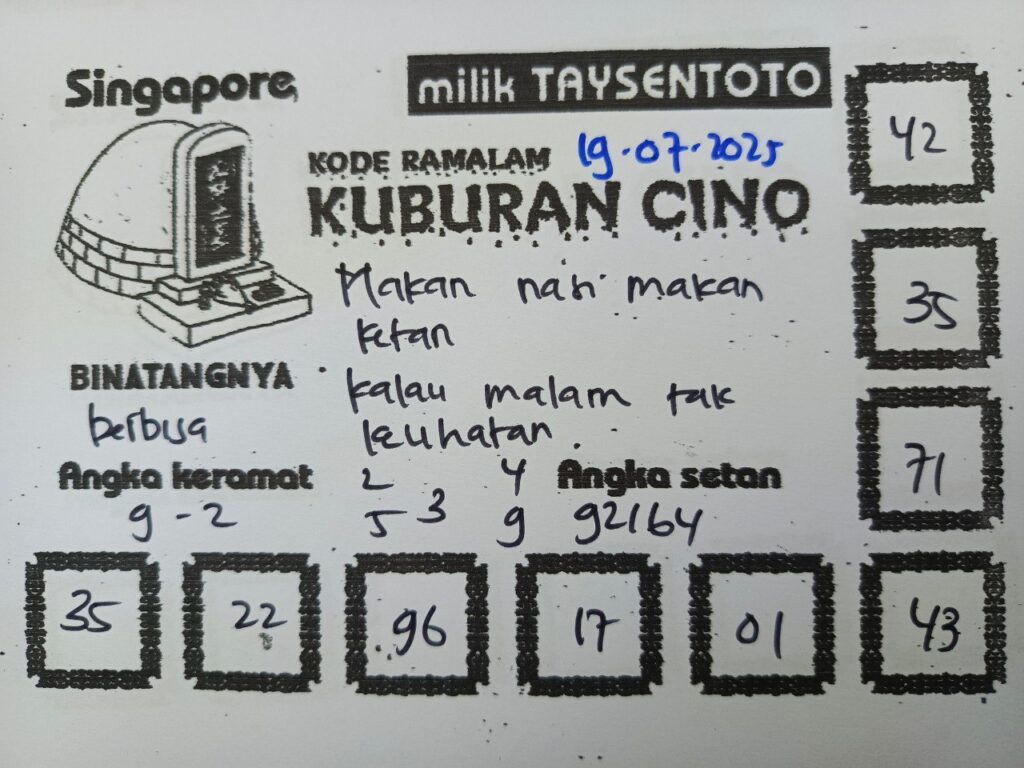 Singapore
milik TAYSENTOTO
KODE RAMALAM 19.07.2025
KUBURAN CINO
Makan nasi makan
ketan
kalau malam tak
keuhatan.
BINATANGNYA
berbisa
Angka keramat
9-2
2 4
5 3 9
Angka setan
92164
42
35
71
35 22 96 17 01 43